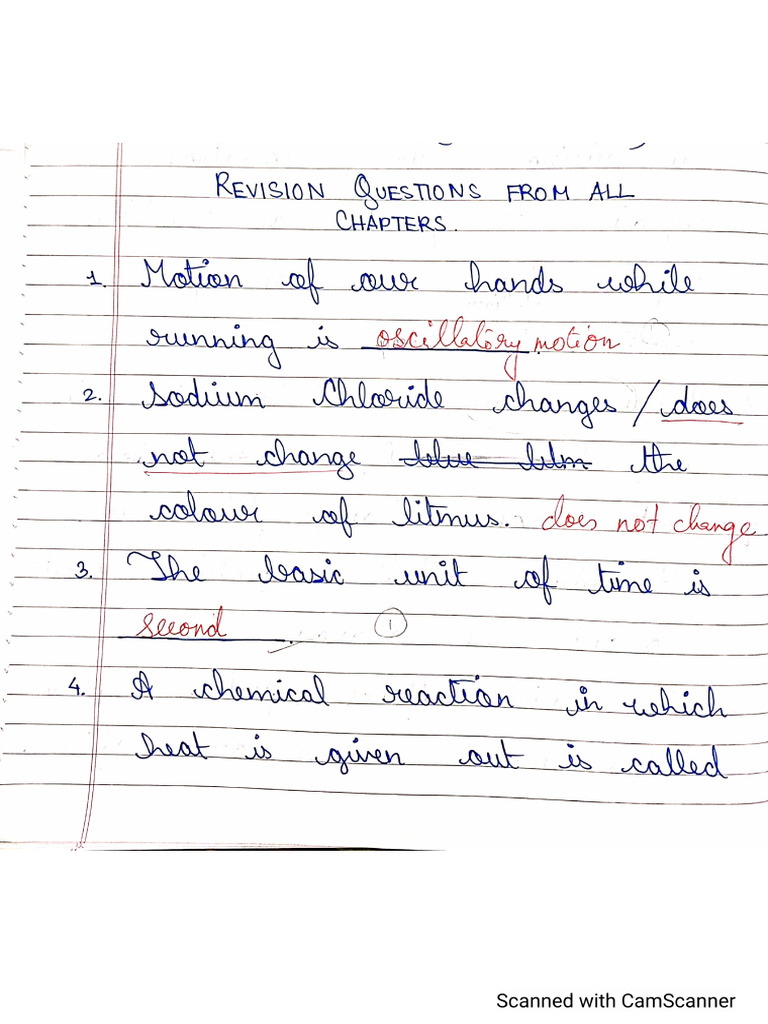 REVISION QUESTIONS FROM ALL
CHAPTERS.
1. Motion of our hands while
running is oscillatory motion
2. Sodium Chloride changes / does
not change blue litm the
colour of litmus. does not change
3. The basic unit of time is
second. 1
4. A chemical reaction in which
heat is given out is called
Scanned with CamScanner